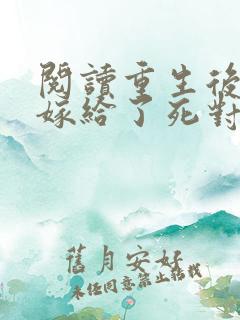 閱讀重生後
嫁給了死對
舊月安好
未经同意禁止转载